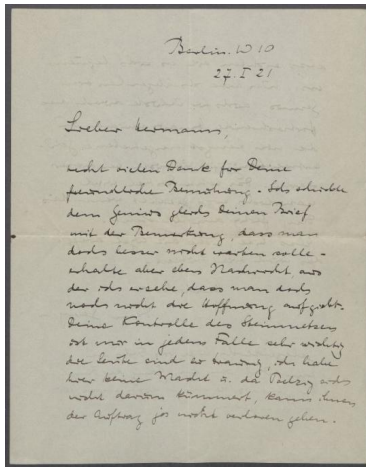 Berlin. W 10
27. I 21
Lieber Hermann,
recht vielen Dank für Deine
freundliche Bemühung. Ich schickte
dem gleich Deinen Brief
mit der Bemerkung, dass man
doch besser nicht warten solle –
erhalte aber eben Nachricht aus
der ich ersehe, dass man doch
noch nicht die Hoffnung aufgiebt.
Deine Kontrolle des
ist mir in jedem Falle sehr wichtig
die Leute sind so traurig, ich habe
hier keine Macht u. da sich
nicht darum kümmert, kann ihnen
der Auftrag ja nicht verloren gehen.